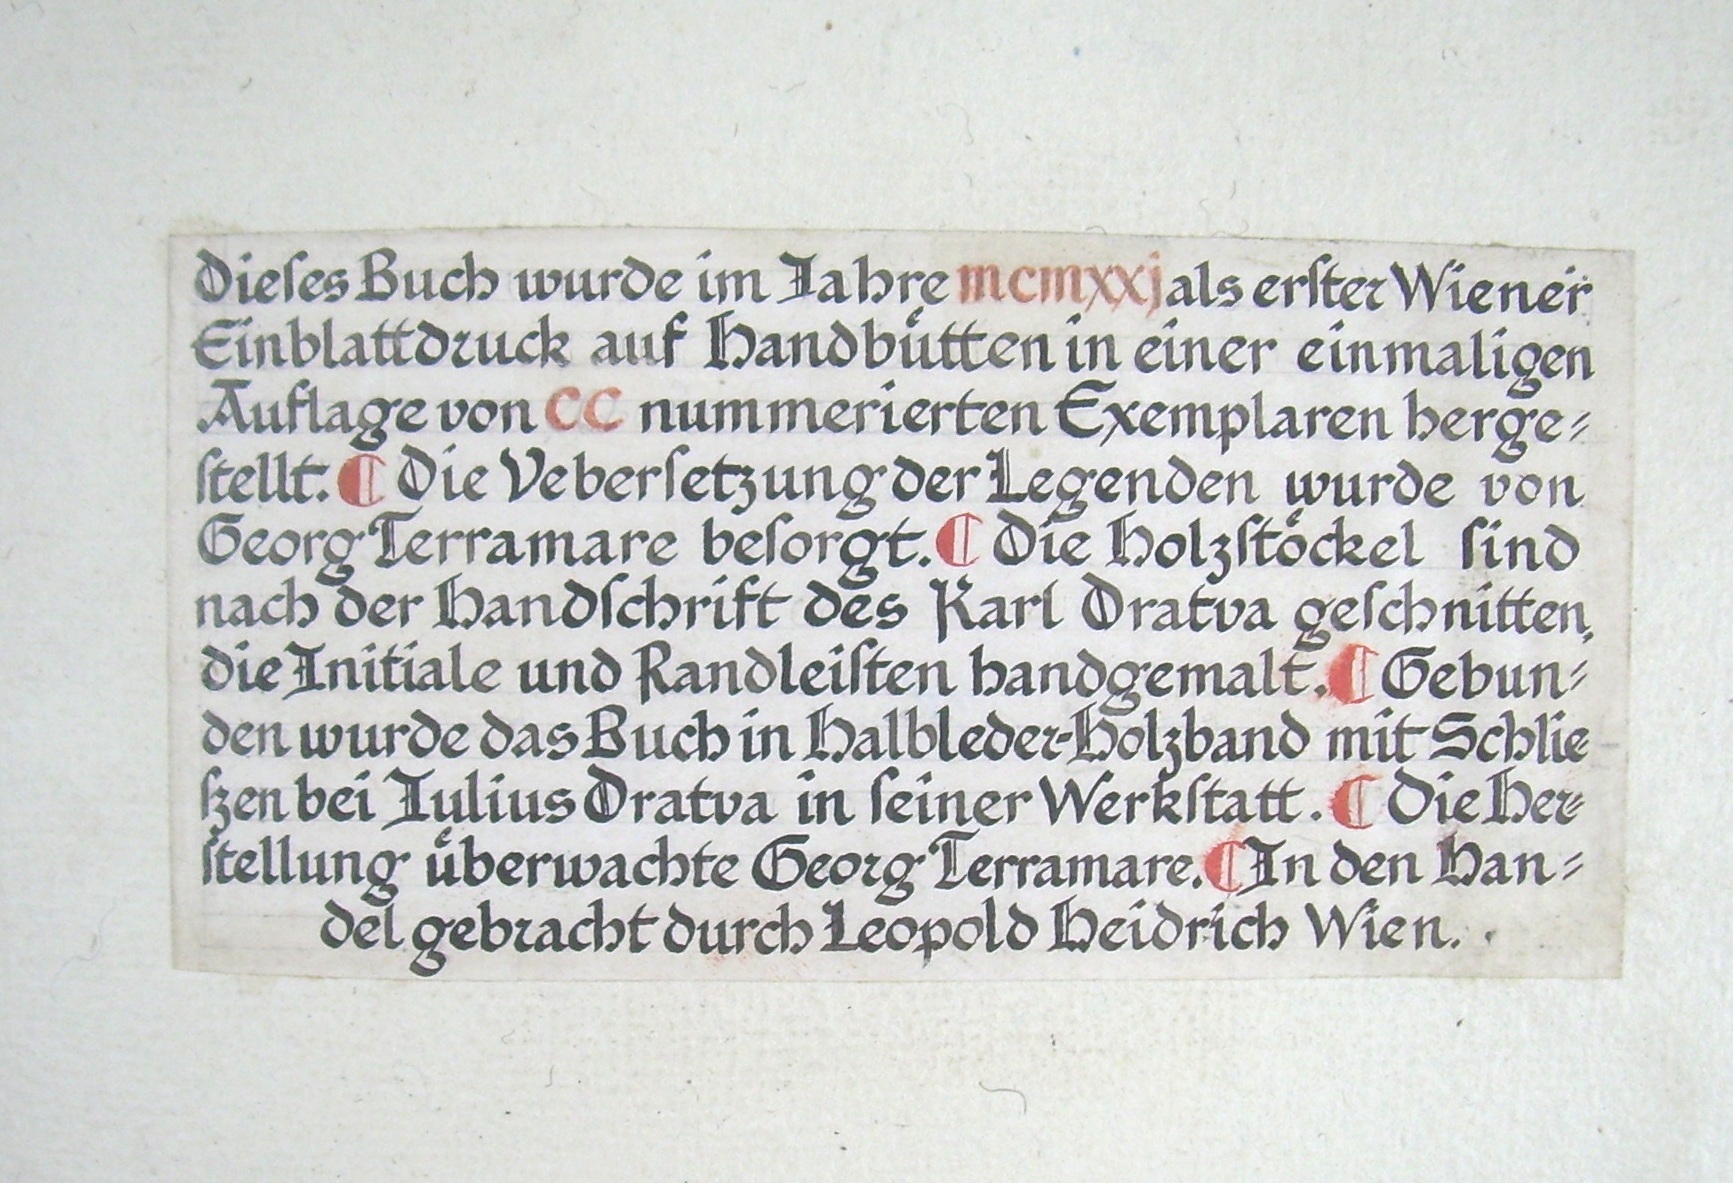 Dieſes Buch wurde im Iahre mcmxxj als erſter Wiener
Einblattdruck auf Handbuͤtten in einer einmaligen
Auflage von CC nummerierten Exemplaren herge⸗
ſtellt. ¶ Die Veberſetzung der Legenden wurde von
Georg Terramare beſorgt. ¶ Die Holzſtoͤckel ſind
nach der Handſchrift des Karl Dratva geſchnitten,
die Initiale und Randleiſten handgemalt. ¶ Gebun⸗
den wurde das Buch in Halbleder-Holzband mit Schlie
ſzen bei Iulius Dratva in ſeiner Werkſtatt. ¶ Die Her⸗
ſtellung uͤberwachte Georg Terramare. ¶ In den Han⸗
del gebracht durch Leopold Heidrich Wien.